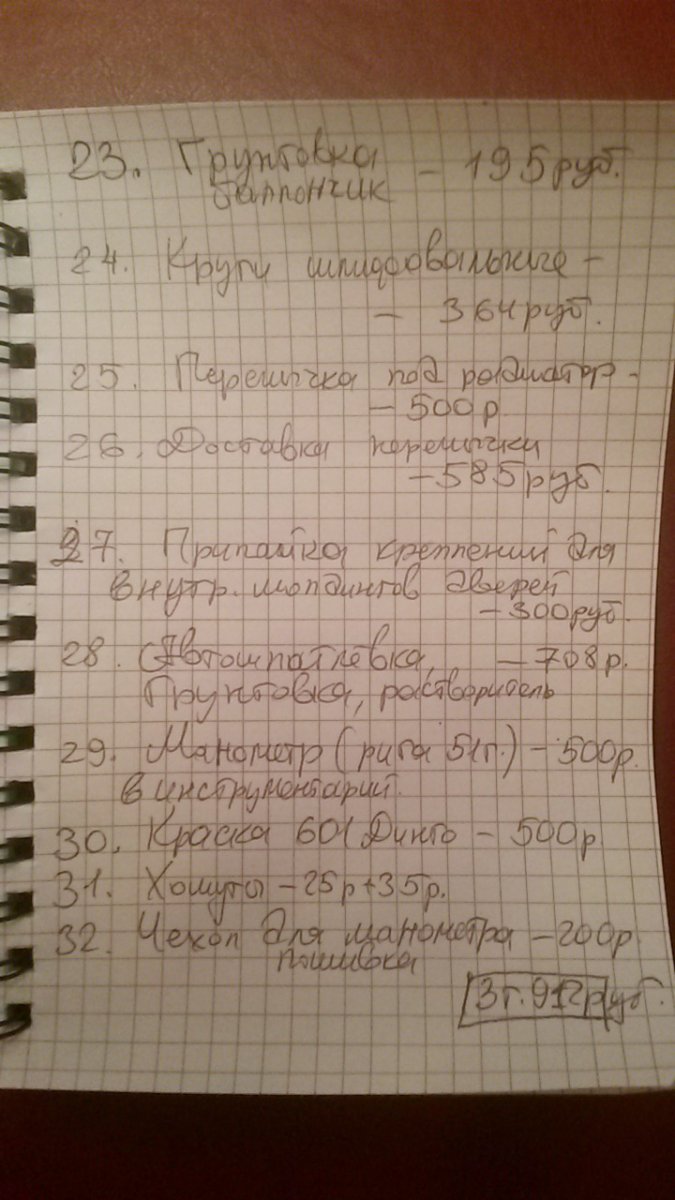 23. Грунтовка
баллончик – 195 руб.
24. Круги шлифовальные –
– 364 руб.
25. Перемычка под радиатор -
– 500 р
26. Доставка перемычки
– 585 руб.
27. Припайка креплений для
внутр. молдингов дверей
– 300 руб.
28. Автошпатлёвка, – 708 р.
Грунтовка, растворитель
29. Манометр (рига 51г.) – 500 р.
в инструментарий.
30. Краска 601 Динго – 500 р.
31. Хомуты – 25 р + 35 р.
32. Чехол для манометра – 200 р
пошивка
3 т. 912 руб.